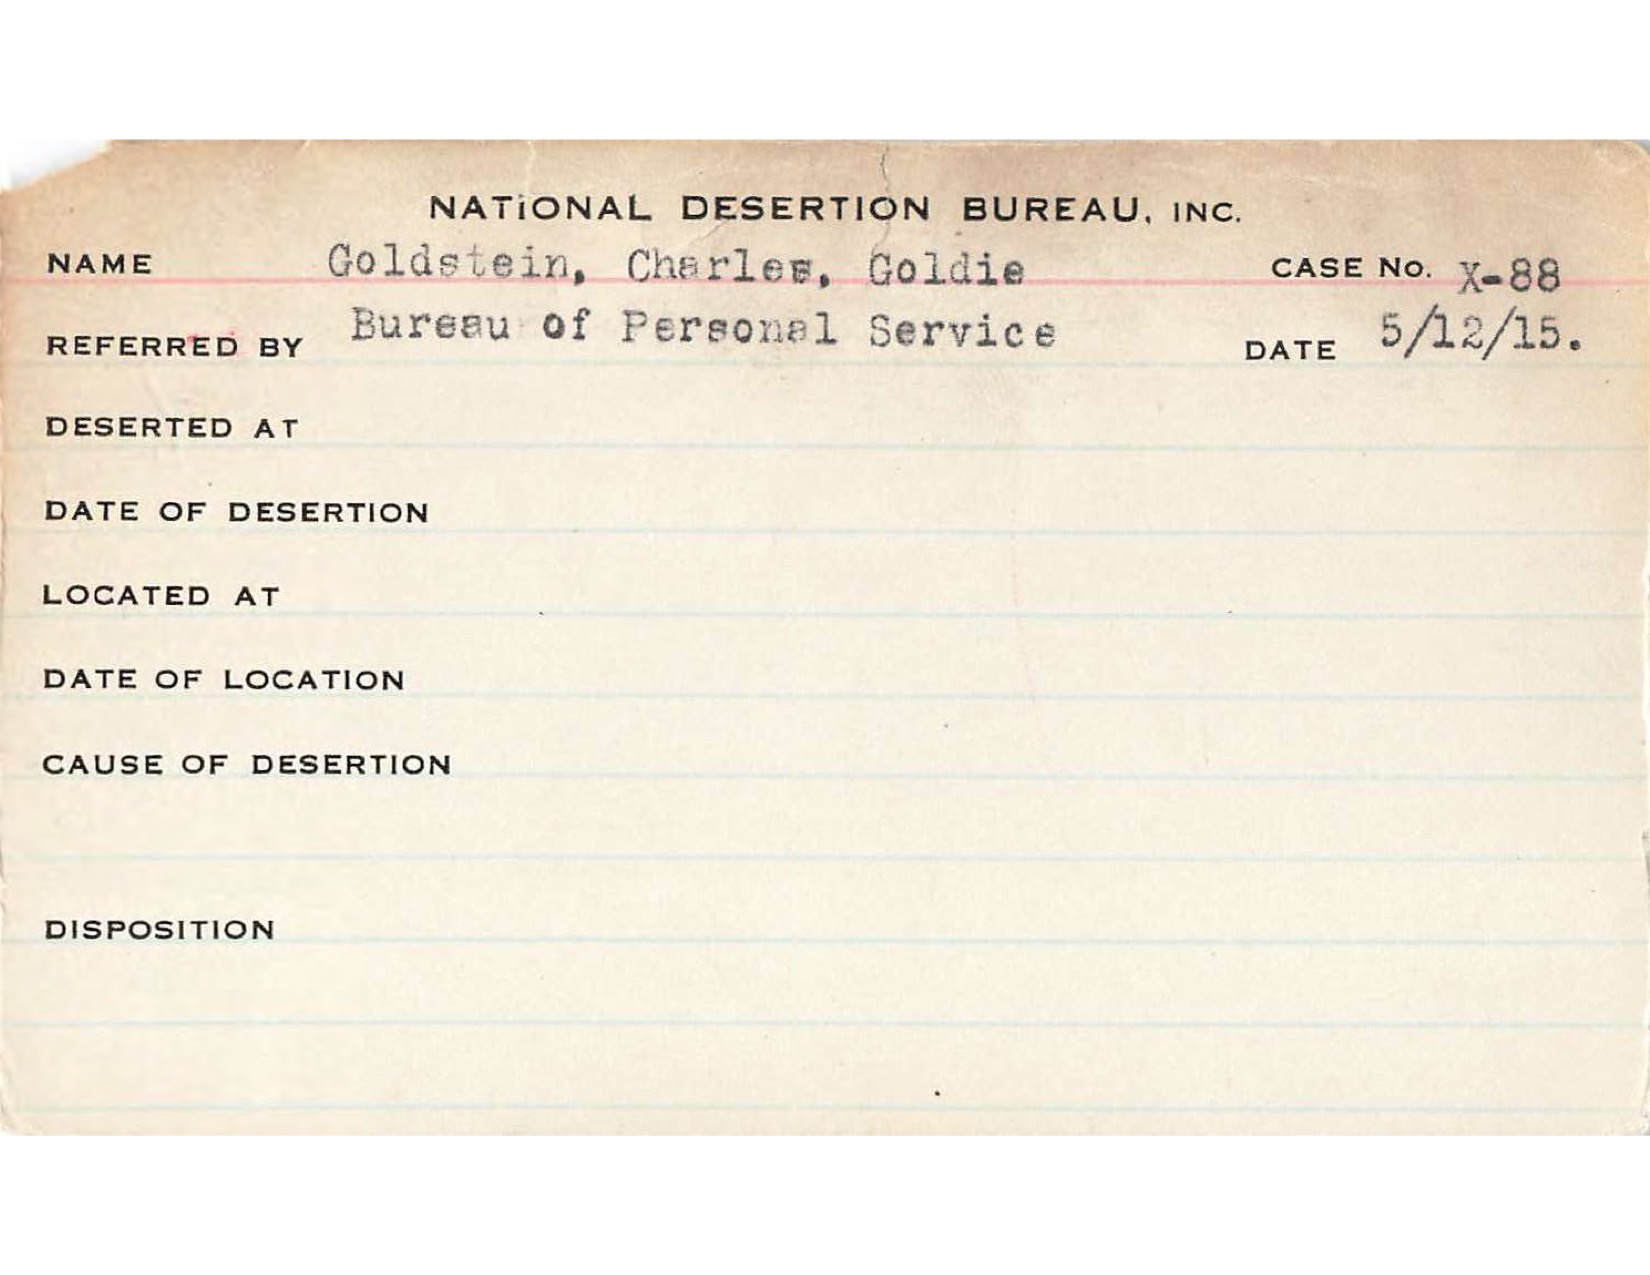 NATIONAL DESERTION BUREAU, INC.
NAME Goldstein, Charles, Goldie CASE No. X-88
REFERRED BY Bureau of Personal Service DATE 5/12/15.
DESERTED AT
DATE OF DESERTION
LOCATED AT
DATE OF LOCATION
CAUSE OF DESERTION
DISPOSITION